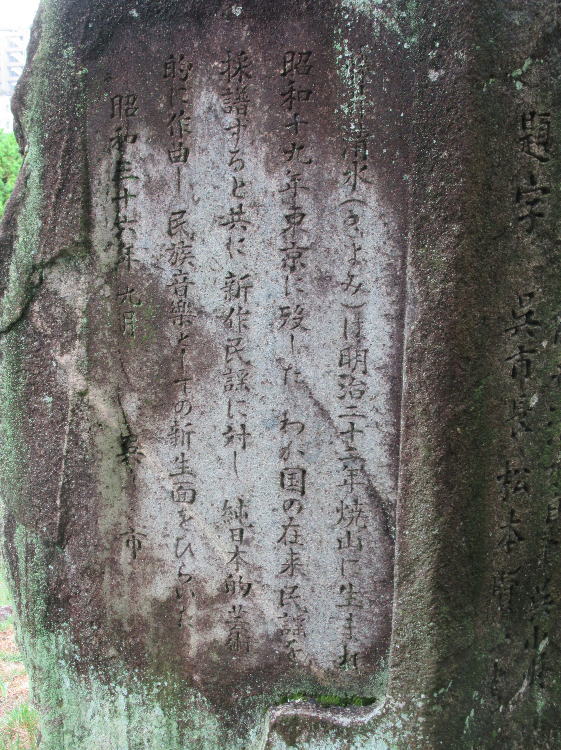 題字 呉市長 松本賢一
藤井清水(きよみ)は明治二十二年焼山に生まれ
昭和十九年東京に歿した わが国の在来民謡を
採譜すると共に新作民謡に対し 純日本的 芸術
的に作曲し 民族音樂としての新生面をひらいた
昭和三十六年 九月 呉 市